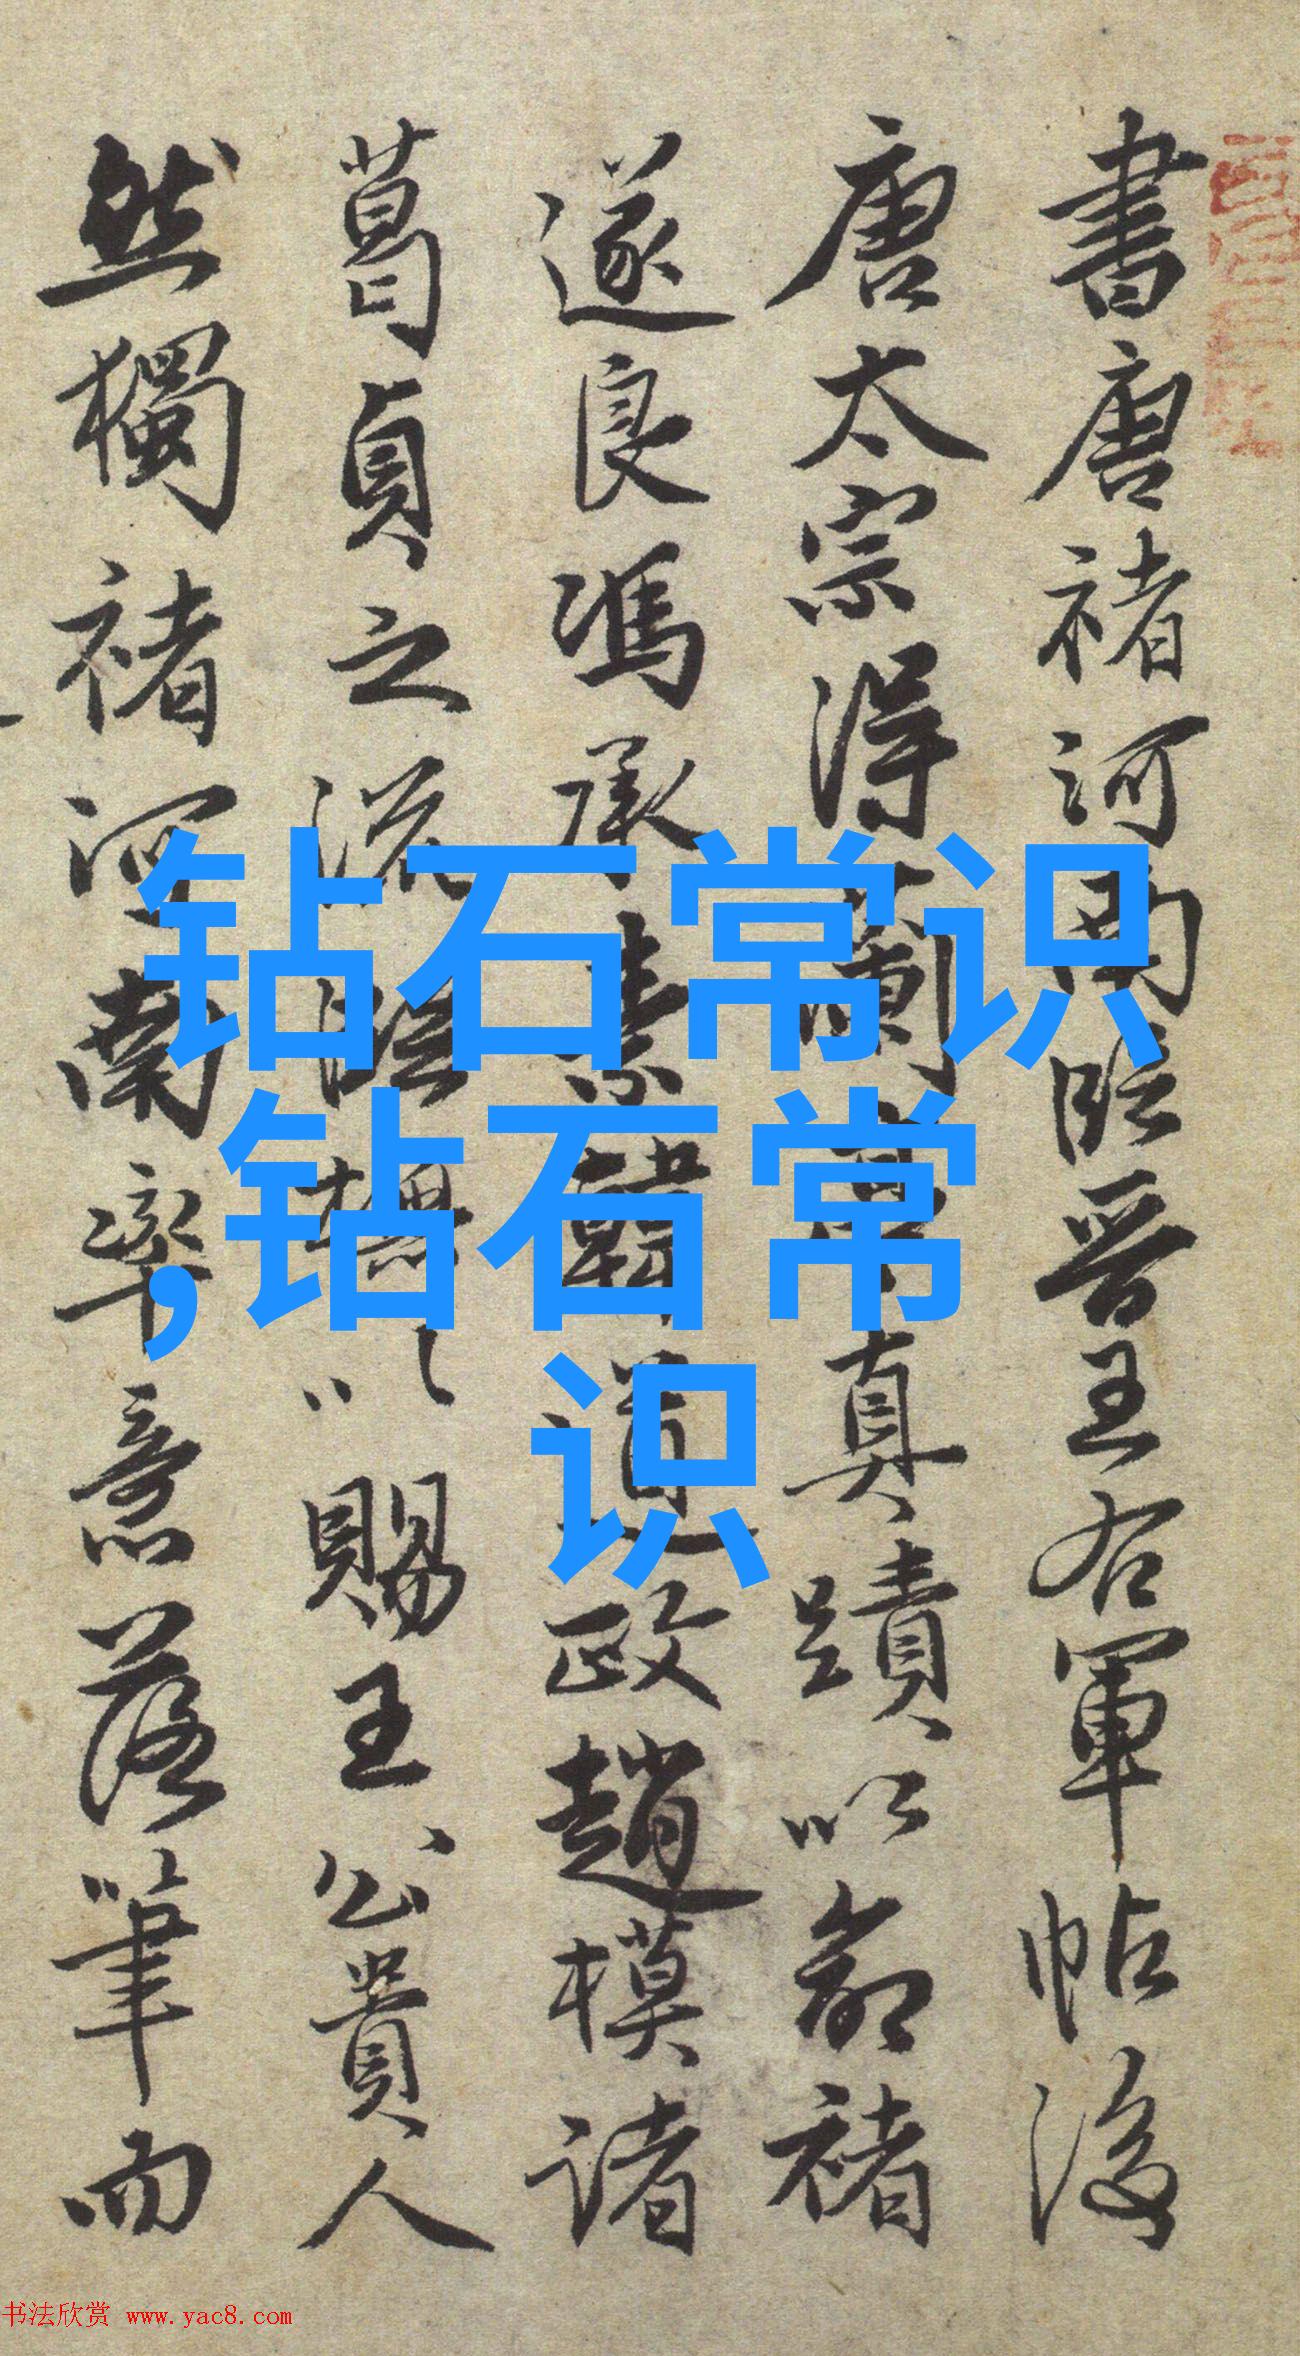 書唐褚河南臨晉王右軍帖後
唐太宗得蘭亭真蹟以命褚
遂良馮承素韓道政趙模諸
葛貞之流臨橅以賜王公貴人
然獨褚河南率意落筆而
钻石常识
,钻石常
识
书法欣赏 www.yac8.com